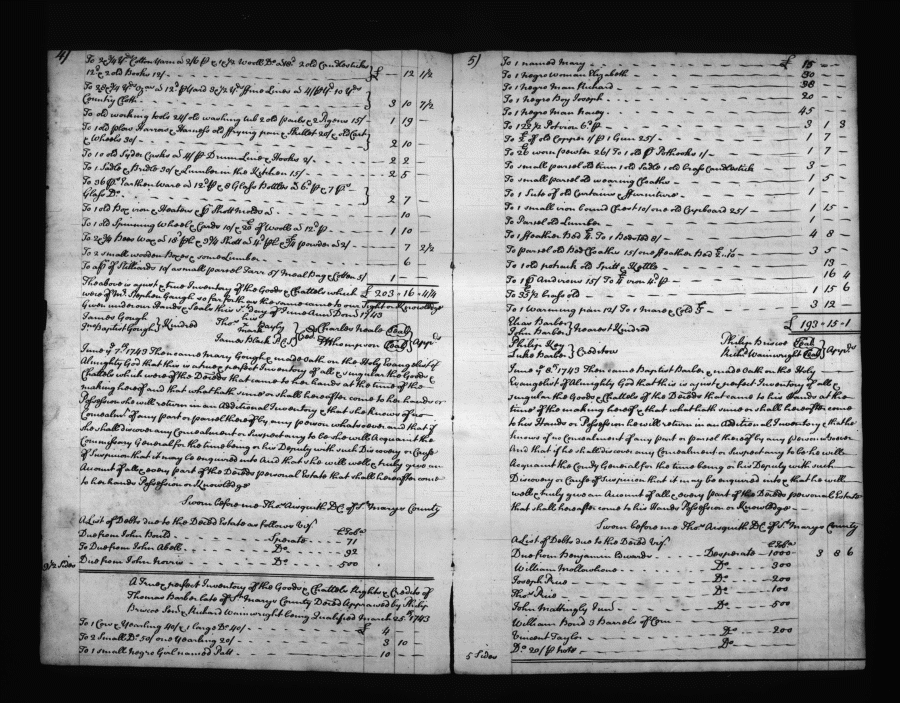 4)
To 2¾ yd Cotton yarn a 2/6 p & 1½ Wooll Do a 18d 2 old Candlesticks
12d & 2 old Books 12/ £ 12 1/2
Country Cloth 3 10 7/2
To old working tools 24/ old washing tub 2 old pails & 2 Piggins 15/ 1 19 —
To 1 old plow Harrow Harness old frying pan & Skillet 20/ & old Cart
& Wheels 30/ 2 10
To 10 old Syder Casks a 4/ p Drum Line & Hooks 2/ 2 2
To 1 Sadle & Bridle 30/ & Lumber in the Kitchen 15/ 2 5
To 36 lb Earthen Ware a 12d p 8 Glass Bottles a 6d p & 7 ps
Glass Do 2 7 —
To 1 old Box iron & Heaters & pr Shott molds a 10
To 1 old Spinning Wheel & Cards 10/ & 20 lb of Wooll a 12d p 1 10
To 2¾ Bees Wax a 18d 7 2/2
To 2 small wooden Boxes & some Lumber 6
To a pr of Stilliards 10/ a small parcel Tarr 5/ Meal Bag & Cotton 5/ 1 —
The above is a just & true Inventory of the Goods & Chattels which £ 203 - 16 - 4/4
were of Mr Stephen Gough so far forth as the same came to our Sight or Knowledge
Given under our Hands & Seals this 1st day of June Anno Dom 1743
James Gough
Jno Baptist Gough } Kindred
James Black Charles Neale (Seal)
Thompson (Seal) } Apprs
June ye 7th 1743 Then came Mary Gough & made Oath on the Holy Evangelist of
Almighty God that this is a true & perfect Inventory of all & singular the Goods &
Chattels which were of the Deced that came to her hands at the time of the
making hereof and that what hath since or shall hereafter come to her hands or
Possession she will return in an Additional Inventory & that she knows of no
Concealmt of any part or parcel thereof by any person whatsoever and that if
she shall discover any Concealment or Suspect any to be she will Acquaint the
Commissary General for the time being or his Deputy with such Discovery or Cause
of Suspicion that it may be enquired into And that she will well & truly give an
Account of all & every part of the Deceds personal Estate that shall hereafter come
to her hands Possession or Knowledge
Sworn before me Thos Aisquith D C of St Marys County
A List of Debts due to the Deced Estate as follows Vizt
£ Toba
Due from John Sperate 71
To Due from John Abell Do 92
Due from John Norris Do 500
9½ Sides
A True & perfect Inventory of the Goods & Chattels Rights & Credits of
Thomas Barber late of St Marys County Deced Appraised by Philip
Briscoe Senr & Richard Wainwright being Qualified March 25th 1743
To 1 Cow & Yearling 40/ & 1 large Do 40/ £ 4 —
To 2 Small Do 50/ one Yearling 20/ 3 10 —
To 1 small Negro Girl named Patt 10 —
5)
To 1 named Mary £ 15 — —
To 1 Negro Woman Elizabeth 30
To 1 Negro Man Richard 38
To 1 Negro Boy Joseph 20
To 1 Negro Man Harry 45
To 122½ Pot iron 6d p 3 1 3
To lb off old Copper 1/ p 1 Gun 25/ 1 7 —
To 26 worn pewter 26/ To 1 old pr Pothooks 1/ 1 7
To small parcel old tinn 1 old Sadle 1 old brass Candlestick 3 —
To small parcel old wearing Cloaths 1 5
To 1 Sute of old Curtains & furniture
To 1 small iron bound Chest 10/ one old Cupboard 25/ 1 15 —
To Parcel old Lumber 1 —
To 1 Feather Bed To 1 Bedsted 8/ 4 8 —
To parcel old Bed Cloaths 15/ one feather Bed 3 5
To 1 old potrack old Spitt & Kettle 13
To 1 pr Andirons 15/ To iron 4d p 16 4
To 35½ brass old 1 15 6
To 1 Warming pan 12/ To 1 mare & Cold £ 3 12
Elias Barber
John Barber } Nearest Kindred £ 193 - 15 - 1
Philip Key
Luke Barber } Creditors
Philip Briscoe (Seal)
Richd Wainwright (Seal) } Apprs
June ye 7th 1743 Then came Baptist Barber & made Oath on the Holy
Evangelist of Almighty God that this is a just & perfect Inventory of all &
singular the Goods & Chattels of the Deceds that came to his Hands at the
time of the making hereof & that what hath since or shall hereafter come
to his Hands or Possession he will return in an Additional Inventory & that he
knows of no Concealment of any part or parcel thereof by any person whatsoever
And that if he shall discover any Concealment or Suspect any to be he will
Acquaint the Comry General for the time being or his Deputy with such
Discovery or Cause of Suspicion that it may be enquired into & that he will
well & truly give an Account of all & every part of the Deceds personal Estate
that shall hereafter come to his Hands Possession or Knowledge
Sworn before me Thos Aisquith D C of St Marys County
A List of Debts due to the Deced Vizt
£ Toba
Due from Benjamin Edwards Desperate 1000 3 8 6
William Mollohone Do 300
Joseph Rice Do 200
Thos Rice Do 100
John Mattingly Junr Do 500
William Bond 3 Barrels of Corn
Vincent Taylor Do 200
Do 20/ p note Do
5 Sides